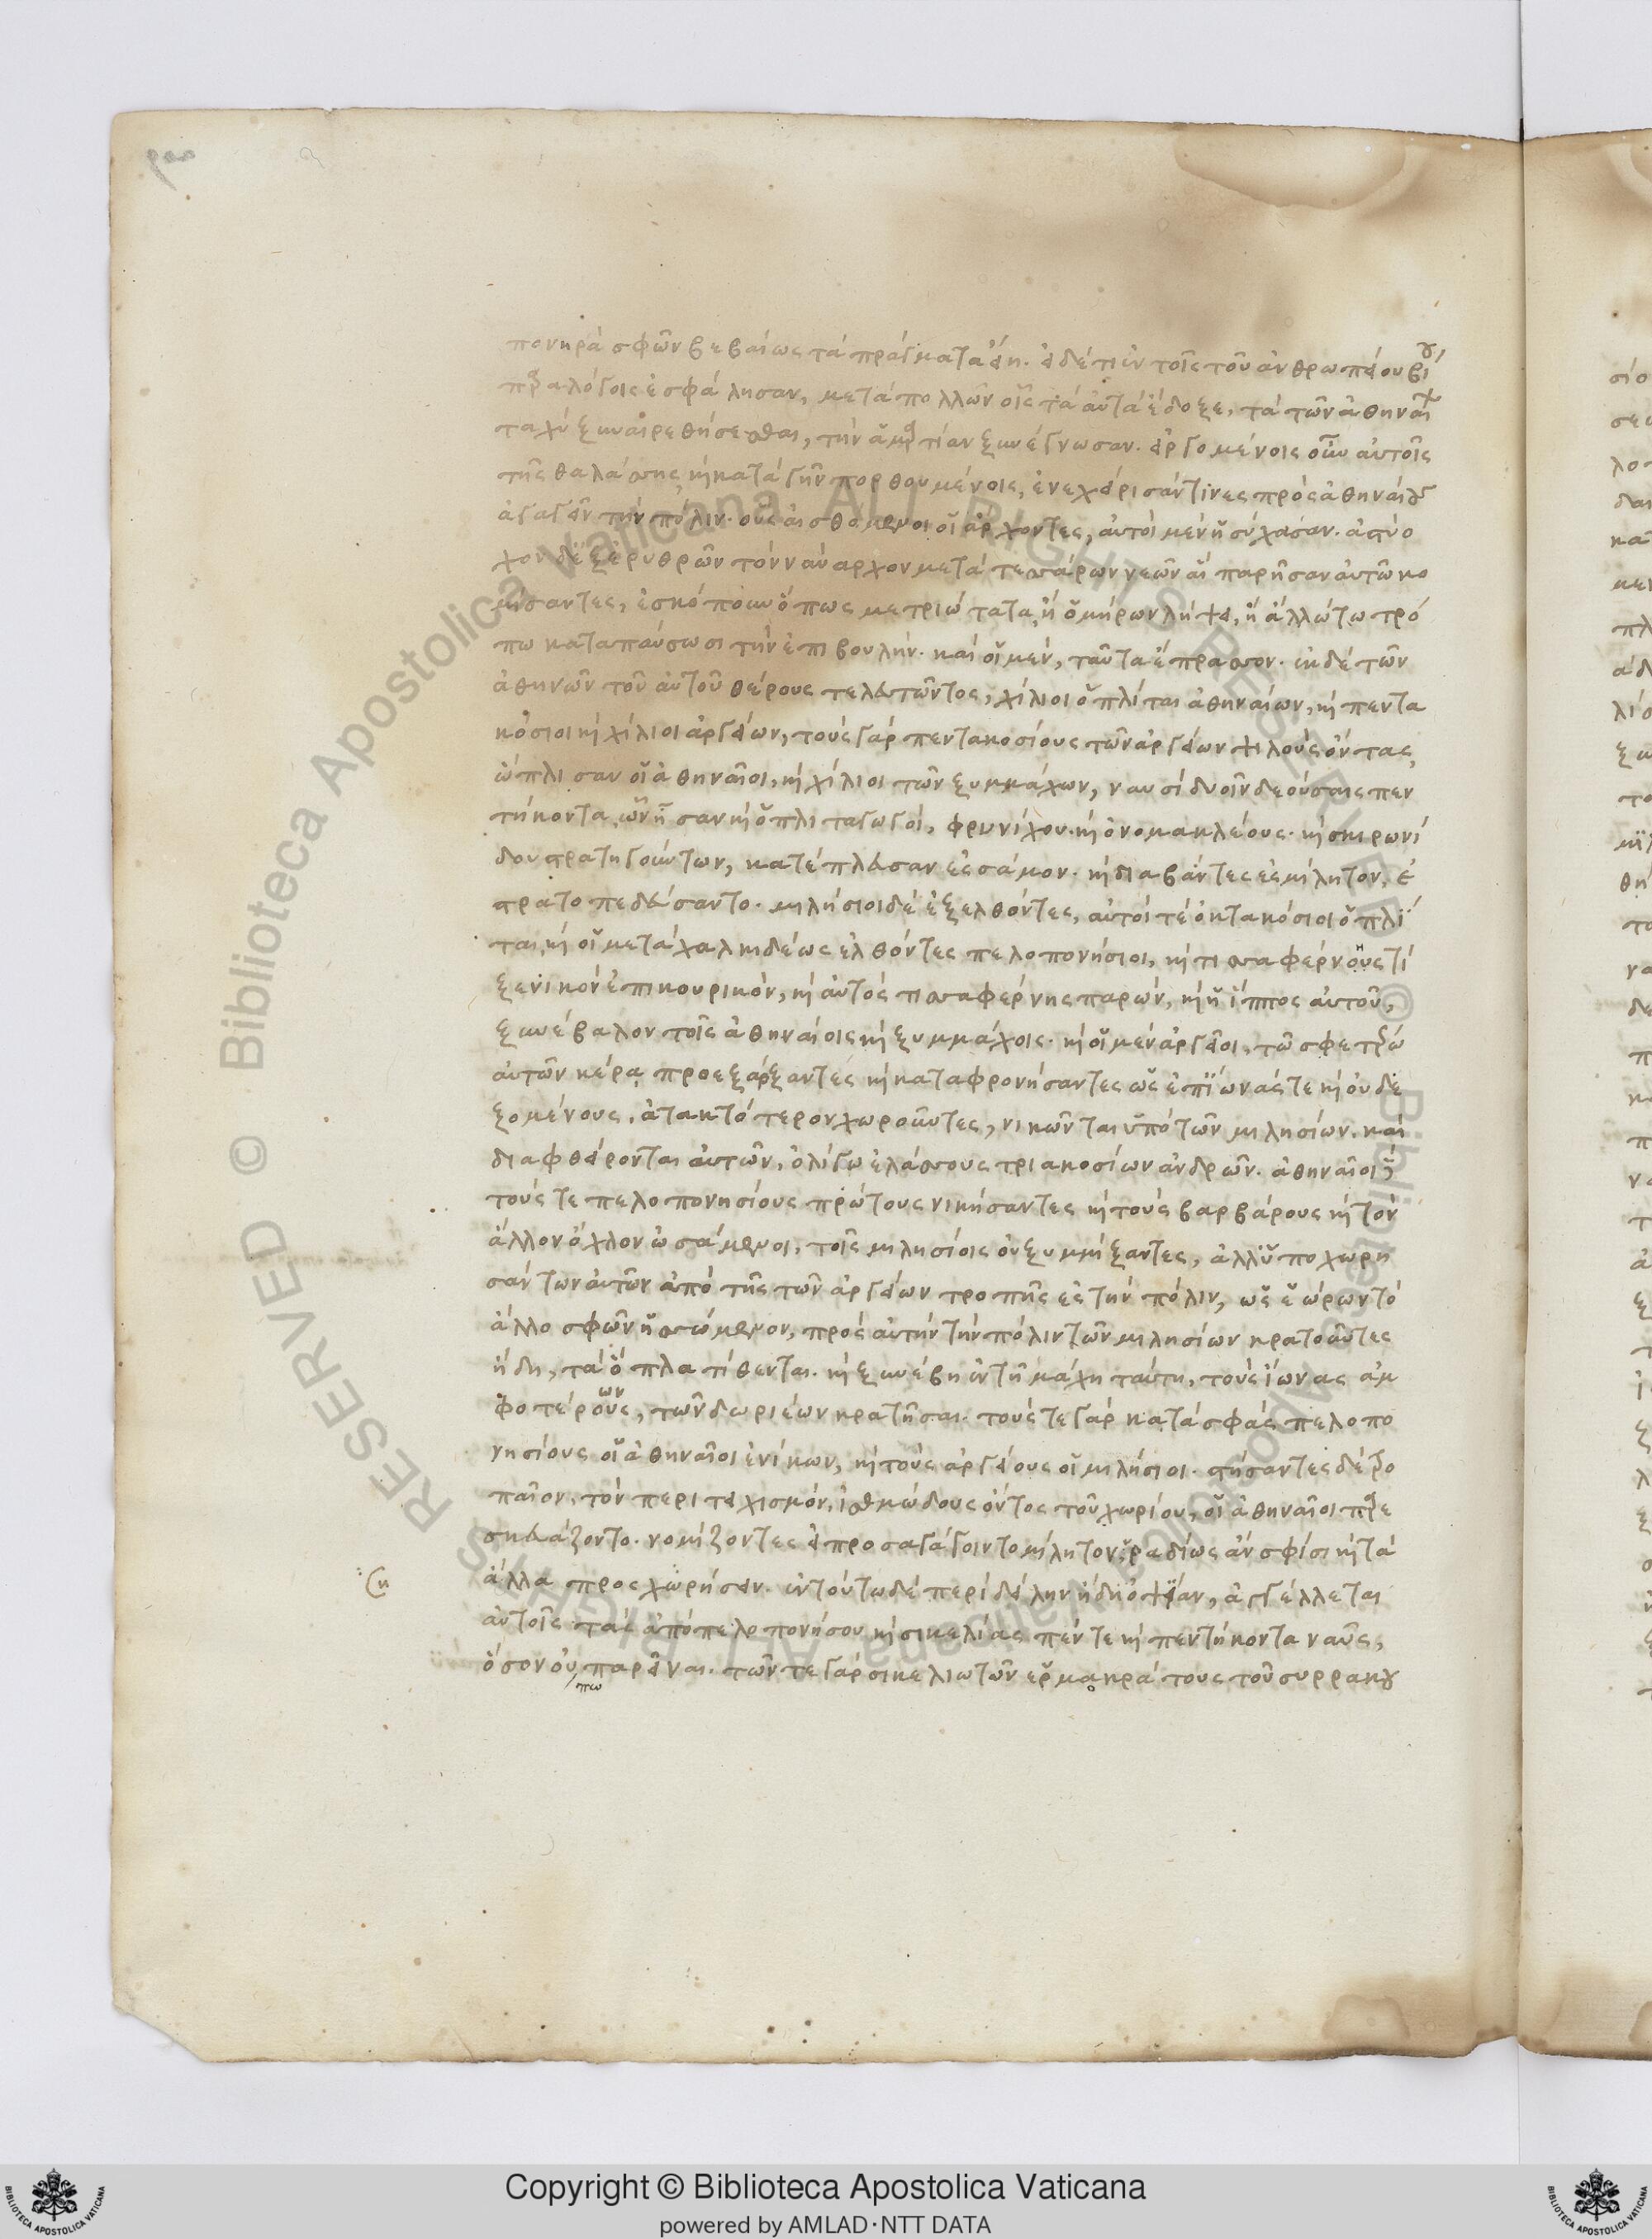 πονηρὰ σφῶν βεβαίως τὰ πράγματα εἴη. εἰ δέ τι ἐν τοῖς τοῦ ἀνθρωπείου βίου
παραλόγοις ἐσφάλησαν, μετὰ πολλῶν οἷς τὰ αὐτὰ ἔδοξε, τὰ τῶν ἀθηναίων
ταχὺ ξυναιρεθήσεσθαι, τὴν ἁμαρτίαν ξυνέγνωσαν. εἰργομένοις οὖν αὐτοῖς
τῆς θαλάσσης καὶ κατὰ γῆν πορθουμένοις, ἐνεχείρισάν τινες πρὸς ἀθηναίους
ἀγαγεῖν τὴν πόλιν. οὓς αἰσθόμενοι οἱ ἄρχοντες, αὐτοὶ μὲν ἡσύχασαν. ἀστύο
χον δὲ ἐξ ἐρυθρῶν τὸν ναύαρχον μετὰ τεσσάρων νεῶν αἳ παρῆσαν αὐτῶ κο
μίσαντες, ἐσκόπουν ὅπως μετριώτατα, ἢ ὁμήρων λήψει, ἢ ἄλλω τω τρό
πω καταπαύσωσι τὴν ἐπιβουλήν. καὶ οἱ μὲν, ταῦτα ἔπρασσον. ἐκ δὲ τῶν
ἀθηνῶν τοῦ αὐτοῦ θέρους τελευτῶντος, χίλιοι ὁπλῖται ἀθηναίων, καὶ πεντα
κόσιοι καὶ χίλιοι ἀργείων, τοὺς γὰρ πεντακοσίους τῶν ἀργείων ψιλοὺς ὄντας,
ὥπλισαν οἱ ἀθηναῖοι, καὶ χίλιοι τῶν ξυμμάχων, ναυσὶ δυοῖν δεούσαις πεν
τήκοντα, ὧν ἦσαν καὶ ὁπλιταγωγοί, φρυνίχου. καὶ ὀνομακλέους. καὶ σκιρωνί
δου στρατηγούντων, κατέπλευσαν ἐς σάμον. καὶ διαβάντες ἐς μίλητον, ἐ
στρατοπεδεύσαντο. μιλήσιοι δὲ ἐξελθόντες, αὐτοί τε ὀκτακόσιοι ὁπλῖ
ται, καὶ οἱ μετὰ χαλκιδέως ἐλθόντες πελοπονήσιοι, καὶ τισσαφέρνους τὶ
ξενικὸν ἐπικουρικόν, καὶ αὐτὸς τισσαφέρνης παρών, καὶ ἡ ἵππος αὐτοῦ,
ξυνέβαλον τοῖς ἀθηναίοις καὶ ξυμμάχοις. καὶ οἱ μὲν ἀργεῖοι, τῶ σφετέρω
αὐτῶν κέρα προεξάρξαντες καὶ καταφρονήσαντες ὡς ἐπ' ἴωνάς τε καὶ οὐ δε
ξομένους, ἀτακτότερον χωροῦντες, νικῶνται ὑπὸ τῶν μιλησίων. καὶ
διαφθείρονται αὐτῶν, ὀλίγω ἐλάσσους τριακοσίων ἀνδρῶν. ἀθηναῖοι δὲ
τούς τε πελοπονησίους πρώτους νικήσαντες καὶ τοὺς βαρβάρους καὶ τὸν
ἄλλον ὄχλον ὠσάμενοι, τοῖς μιλησίοις οὐ ξυμμίξαντες, ἀλλ' ὑποχωρη
σάντων αὐτῶν ἀπὸ τῆς τῶν ἀργείων τροπῆς ἐς τὴν πόλιν, ὡς ἑώρων τὸ
ἄλλο σφῶν ἡσσώμενον, πρὸς αὐτὴν τὴν πόλιν τῶν μιλησίων κρατοῦντες
ἤδη, τὰ ὅπλα τίθενται. καὶ ξυνέβη ἐν τῆ μάχη ταύτη, τοὺς ἴωνας ἀμ
φοτέρους, τῶν δωριέων κρατῆσαι. τούς τε γὰρ κατὰ σφᾶς πελοπο
νησίους οἱ ἀθηναῖοι ἐνίκων, καὶ τοὺς ἀργείους οἱ μιλήσιοι. στήσαντες δὲ τρο
παῖον, τὸν περιτειχισμόν, ἰσθμώδους ὄντος τοῦ χωρίου, οἱ ἀθηναῖοι παρε
σκευάζοντο. νομίζοντες εἰ προσαγάγοιντο μίλητον, ῥαδίως ἂν σφίσι καὶ τὰ
ἄλλα προσχωρήσειν. ἐν τούτω δὲ περὶ δείλην ἤδη ὀψίαν, ἀγγέλλεται
αὐτοῖς τὰς ἀπὸ πελοπονήσου καὶ σικελίας πέντε καὶ πεντήκοντα ναῦς,
ὅσον οὔπω παρεῖναι. τῶν τε γὰρ σικελιωτῶν ἑρμοκράτους τοῦ συρρακου
RESERVED © Biblioteca Apostolica Vaticana. ALL RIGHTS RESERVED © Biblioteca Apostolica Vaticana. ALL RIGHTS
Copyright © Biblioteca Apostolica Vaticana
powered by AMLAD·NTT DATA
BIBLIOTECA APOSTOLICA VATICANA
BIBLIOTECA APOSTOLICA VATICANA